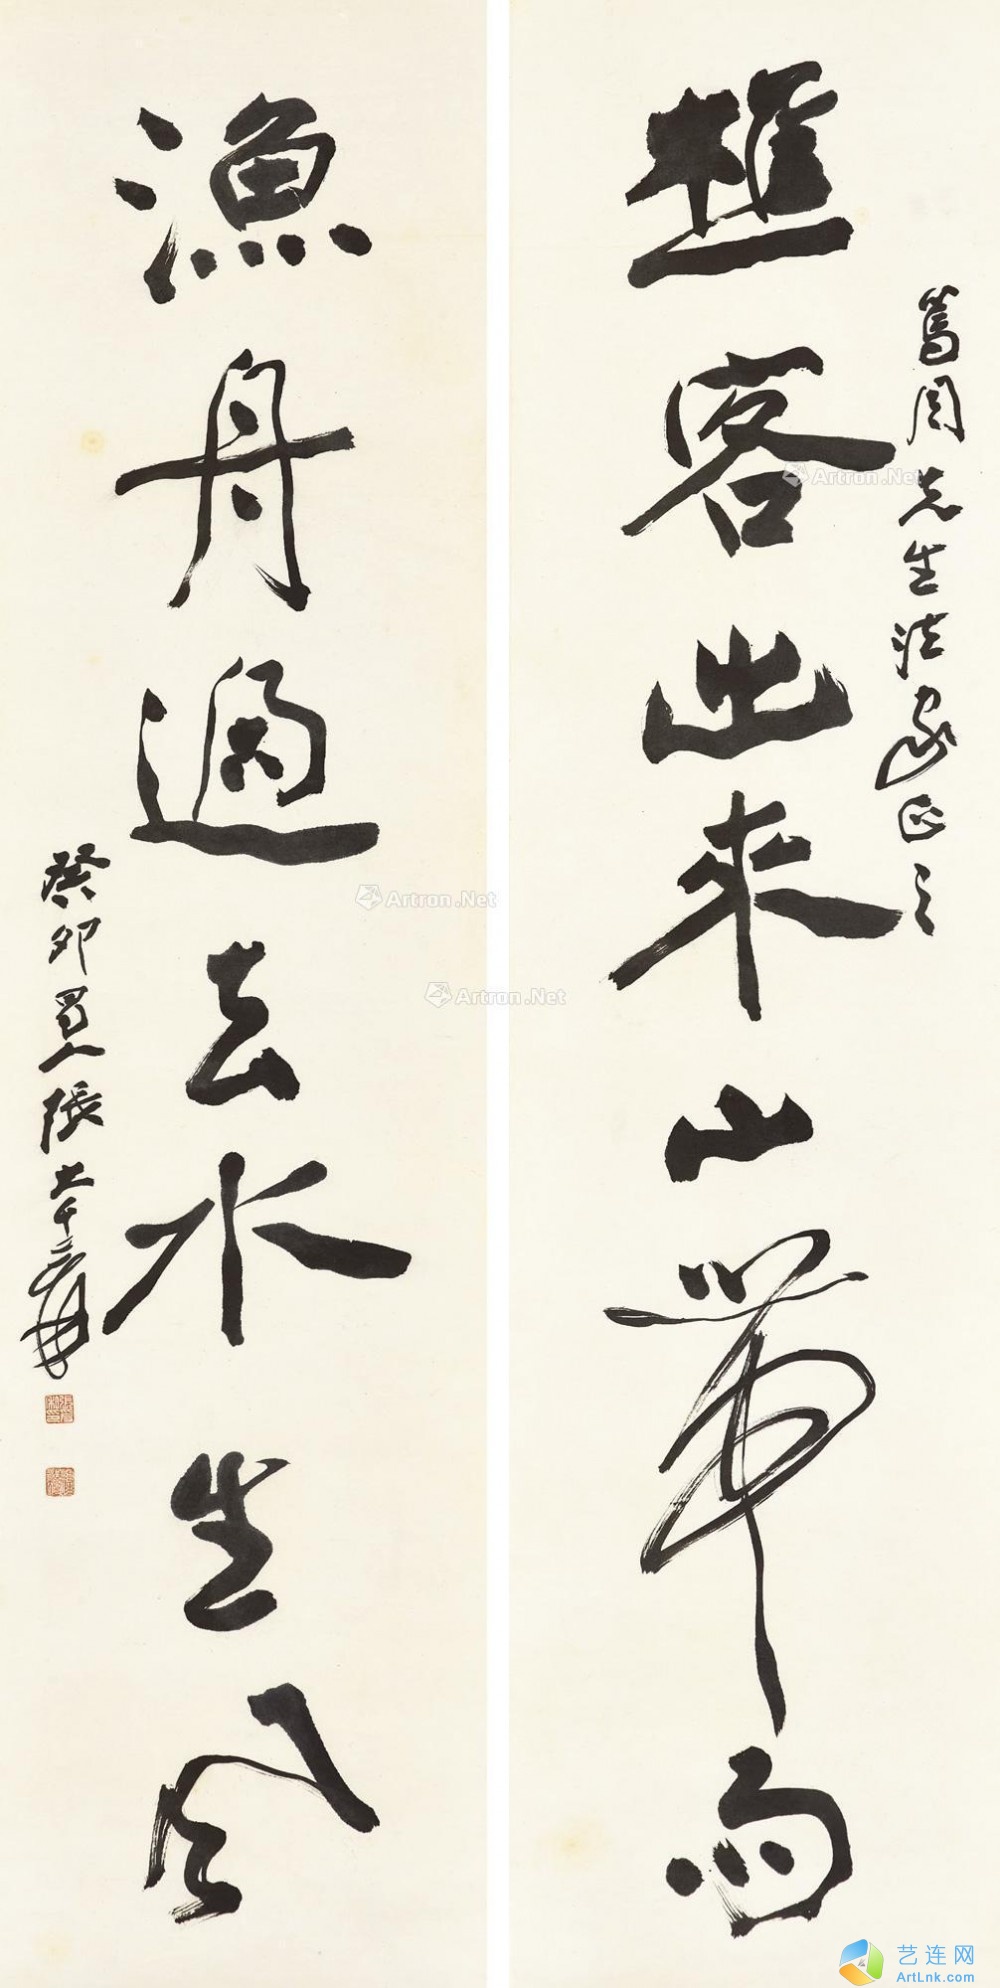 樵客出來山帶雨
篤周先生法家正之
漁舟過去水生風
癸卯蜀人張大千爰
Artron.Net
Artron.Net
Artron.Net
艺连网
ArtLnk.com